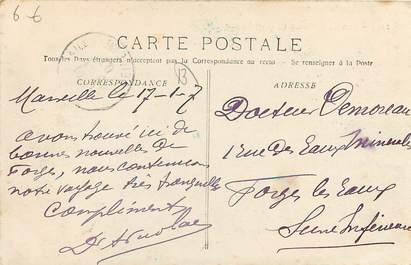 6-6
CARTE POSTALE
Tous les Pays étrangers n'acceptent pas la Correspondance au recto - Se renseigner à la Poste
CORRESPONDANCE
13
ADRESSE
Marseille le 17-1-7
avons trouvé ici de
bonnes nouvelles de
Forges, nous continuons
notre voyage très tranquilles
Compliments
Dr Nicolas
Docteur Demoreau
1 rue des Eaux Minerales
Forges les Eaux
Seine Inférieure